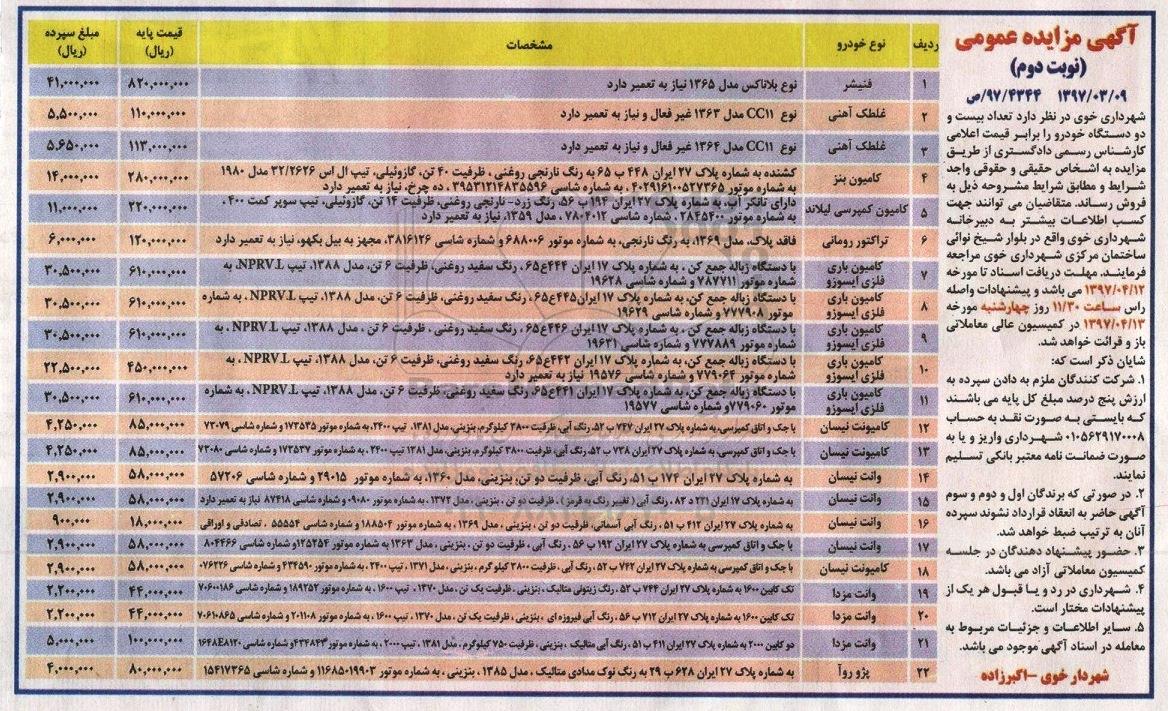 آگهی مزایده عمومی
(نوبت دوم)
۱۳۹۷/۰۳/۰۹ ۹۷/۴۳۴۴/ص
شهرداری خوی در نظر دارد تعداد بیست و
دو دستگاه خودرو را برابر قیمت اعلامی
کارشناس رسمی دادگستری از طریق
مزایده به اشخاص حقیقی و حقوقی واجد
شرایط و مطابق شرایط مشروحه ذیل به
فروش رساند. متقاضیان می توانند جهت
کسب اطلاعات بیشتر به دبیرخانه
شهرداری خوی واقع در بلوار شیخ نوائی
ساختمان مرکزی شهرداری خوی مراجعه
فرمایند. مهلت دریافت اسناد تا مورخه
۱۳۹۷/۰۴/۱۲ می باشد و پیشنهادات واصله
راس ساعت ۱۱/۳۰ روز چهارشنبه مورخه
۱۳۹۷/۰۴/۱۳ در کمیسیون عالی معاملاتی
باز و قرائت خواهد شد.
شایان ذکر است که:
۱. شرکت کنندگان ملزم به دادن سپرده به
ارزش پنج درصد مبلغ کل پایه می باشند
که بایستی به صورت نقد به حساب
۰۱۰۵۶۲۹۱۷۰۰۰۸ شهرداری واریز و یا به
صورت ضمانت نامه معتبر بانکی تسلیم
نمایند.
۲. در صورتی که برندگان اول و دوم و سوم
آگهی حاضر به انعقاد قرارداد نشوند سپرده
آنان به ترتیب ضبط خواهد شد.
۳. حضور پیشنهاد دهندگان در جلسه
کمیسیون معاملاتی آزاد می باشد.
۴. شهرداری در رد و یا قبول هر یک از
پیشنهادات مختار است.
۵. سایر اطلاعات و جزئیات مربوط به
معامله در اسناد آگهی موجود می باشد.
شهردار خوی -اکبرزاده
ردیف نوع خودرو مشخصات قیمت پایه (ریال) مبلغ سپرده (ریال)
۱ فنیشر نوع بلاناکس مدل ۱۳۶۵ نیاز به تعمیر دارد ۸۲۰,۰۰۰,۰۰۰ ۴۱,۰۰۰,۰۰۰
۲ غلطک آهنی نوع CC۱۱ مدل ۱۳۶۳ غیر فعال و نیاز به تعمیر دارد ۱۱۰,۰۰۰,۰۰۰ ۵,۵۰۰,۰۰۰
۳ غلطک آهنی نوع CC۱۱ مدل ۱۳۶۴ غیر فعال و نیاز به تعمیر دارد ۱۱۳,۰۰۰,۰۰۰ ۵,۶۵۰,۰۰۰
۴ کامیون بنز کشنده به شماره پلاک ۲۷ ایران ۴۴۸ ب ۶۵ به رنگ نارنجی روغنی ، ظرفیت ۴۰ تن، گازوئیلی، تیپ ال اس ۳۲/۲۶۲۶ مدل ۱۹۸۰
به شماره موتور ۴۰۲۹۱۶۱۰۰۵۲۷۳۶۵ ، به شماره شاسی ۳۹۵۳۱۲۱۴۸۳۵۵۹۶ ، ده چرخ، نیاز به تعمیر دارد ۲۸۰,۰۰۰,۰۰۰ ۱۴,۰۰۰,۰۰۰
۵ کامیون کمپرسی لیلاند دارای تانکر آب، به شماره پلاک ۲۷ ایران ۱۹۴ ب ۵۶، رنگ زرد- نارنجی روغنی، ظرفیت ۱۴ تن، گازوئیلی، تیپ سوپر کمت ۴۰۰ ،
به شماره موتور ۲۸۴۵۴۰۰ ، شماره شاسی ۷۸۰۴۰۱۲ ، مدل ۱۳۵۹، نیاز به تعمیر دارد ۲۲۰,۰۰۰,۰۰۰ ۱۱,۰۰۰,۰۰۰
۶ تراکتور رومانی فاقد پلاک، مدل ۱۳۶۹، به رنگ نارنجی، به شماره موتور ۶۸۸۰۰۶ و شماره شاسی ۳۸۱۶۱۲۶، مجهز به بیل بکهو، نیاز به تعمیر دارد ۱۲۰,۰۰۰,۰۰۰ ۶,۰۰۰,۰۰۰
۷ کامیون باری فلزی ایسوزو با دستگاه زباله جمع کن ، به شماره پلاک ۱۷ ایران ۴۴۴ع۶۵ ، رنگ سفید روغنی، ظرفیت ۶ تن، مدل ۱۳۸۸، تیپ NPRV.L، به
شماره موتور ۷۸۷۷۱۱ و شماره شاسی ۱۹۶۲۸ ۶۱۰,۰۰۰,۰۰۰ ۳۰,۵۰۰,۰۰۰
۸ کامیون باری فلزی ایسوزو با دستگاه زباله جمع کن، به شماره پلاک ۱۷ ایران۴۴۵ع۶۵ ، رنگ سفید روغنی، ظرفیت ۶ تن، مدل ۱۳۸۸، تیپ NPRV.L ، به شماره
موتور ۷۷۷۹۰۸ و شماره شاسی ۱۹۶۲۹ ۶۱۰,۰۰۰,۰۰۰ ۳۰,۵۰۰,۰۰۰
۹ کامیون باری فلزی ایسوزو با دستگاه زباله جمع کن ، به شماره پلاک ۱۷ ایران ۴۴۶ع۶۵ ، رنگ سفید روغنی ، ظرفیت ۶ تن ، مدل ۱۳۸۸، تیپ NPRV.L ، به
شماره موتور ۷۷۷۸۸۹ و شماره شاسی ۱۹۶۳۱ ۶۱۰,۰۰۰,۰۰۰ ۳۰,۵۰۰,۰۰۰
۱۰ کامیون باری فلزی ایسوزو با دستگاه زباله جمع کن، به شماره پلاک ۱۷ ایران ۴۴۲ع۶۵، رنگ سفید روغنی، ظرفیت ۶ تن، مدل ۱۳۸۸، تیپ NPRV.L ، به
شماره موتور ۷۷۹۰۶۴ و شماره شاسی ۱۹۵۷۶ نیاز به تعمیر دارد ۴۵۰,۰۰۰,۰۰۰ ۲۲,۵۰۰,۰۰۰
۱۱ کامیون باری فلزی ایسوزو با دستگاه زباله جمع کن، به شماره پلاک ۱۷ ایران ۴۴۱ع۶۵، رنگ سفید روغنی، ظرفیت ۶ تن، مدل ۱۳۸۸ ، تیپ NPRV.L ، به شماره
موتور ۷۷۹۰۶۰و شماره شاسی ۱۹۵۷۷ ۶۱۰,۰۰۰,۰۰۰ ۳۰,۵۰۰,۰۰۰
۱۲ کامیونت نیسان با جک و اتاق کمپرسی،به شماره پلاک ۲۷ ایران ۷۴۷ ب ۵۲، رنگ آبی، ظرفیت ۳۸۰۰ کیلوگرم، بنزینی، مدل ۱۳۸۱، تیپ ۲۴۰۰، به شماره موتور ۱۷۳۵۳۵ و شماره شاسی ۷۳۰۷۹ ۸۵,۰۰۰,۰۰۰ ۴,۲۵۰,۰۰۰
۱۳ کامیونت نیسان با جک و اتاق کمپرسی، به شماره پلاک ۲۷ ایران ۷۳۸ ب ۵۲، رنگ آبی، ظرفیت ۳۸۰۰ کیلوگرم، بنزینی، مدل ۱۳۸۱ تیپ ۲۴۰۰ ، به شماره موتور ۱۷۳۵۳۷ و شماره شاسی ۷۳۰۸۰ ۸۵,۰۰۰,۰۰۰ ۴,۲۵۰,۰۰۰
۱۴ وانت نیسان به شماره پلاک ۲۷ ایران ۱۷۴ ب ۵۱، رنگ آبی، ظرفیت دو تن، بنزینی، مدل ۱۳۶۰، به شماره موتور ۲۹۰۱۵ و شماره شاسی ۵۷۲۰۶ ۵۸,۰۰۰,۰۰۰ ۲,۹۰۰,۰۰۰
۱۵ وانت نیسان به شماره پلاک ۱۷ ایران ۲۲۱ د ۸۳ ، رنگ آبی ( تغییر رنگ به قرمز) ، ظرفیت دو تن ، بنزینی ، مدل ۱۳۷۲ ، به شماره موتور ۰۹۰۸۰ و شماره شاسی ۸۷۴۱۸ نیاز به تعمیر دارد ۵۸,۰۰۰,۰۰۰ ۲,۹۰۰,۰۰۰
۱۶ وانت نیسان به شماره پلاک ۲۷ ایران ۴۱۲ ب ۵۱ ، رنگ آبی آسمانی، ظرفیت دو تن ، بنزینی ، مدل ۱۳۶۹ ، به شماره موتور ۱۸۸۵۰۴ و شماره شاسی ۵۵۵۵۴ ، تصادفی و اوراقی ۱۸,۰۰۰,۰۰۰ ۹۰۰,۰۰۰
۱۷ وانت نیسان با جک و اتاق کمپرسی به شماره پلاک ۲۷ ایران ۱۹۲ ب ۵۶ ، رنگ آبی ، ظرفیت دو تن ، بنزینی ، مدل ۱۳۶۳ به شماره موتور ۱۲۵۲۵۴و شماره شاسی ۸۰۴۴۶۶ ۵۸,۰۰۰,۰۰۰ ۲,۹۰۰,۰۰۰
۱۸ کامیونت نیسان با جک و اتاق کمپرسی به شماره پلاک ۲۷ ایران ۷۴۲ ب ۵۲ ، رنگ آبی ، ظرفیت ۲۸۰۰ کیلو گرم ، بنزینی ، مدل ۱۳۷۱ ، تیپ ۲۴۰۰ ، به شماره موتور ۴۳۴۵۹۰ و شماره شاسی ۰۷۶۲۲۶ ۵۸,۰۰۰,۰۰۰ ۲,۹۰۰,۰۰۰
۱۹ وانت مزدا تک کابین ۱۶۰۰ به شماره پلاک ۲۷ ایران ۷۴۴ ب ۵۲ ، رنگ زیتونی متالیک ، بنزینی ، ظرفیت یک تن ، مدل ۱۳۷۰ ، تیپ ۱۶۰۰ ، به شماره موتور ۱۸۹۲۵۲ و شماره شاسی ۷۰۶۰۰۱۸۶ ۴۴,۰۰۰,۰۰۰ ۲,۲۰۰,۰۰۰
۲۰ وانت مزدا تک کابین ۱۶۰۰ به شماره پلاک ۲۷ ایران ۷۱۲ ب ۵۶ ، رنگ آبی فیروزه ای ، بنزینی ، ظرفیت یک تن ، مدل ۱۳۷۰ ، تیپ ۱۶۰۰ ، به شماره موتور ۲۰۱۱۰۸ و شماره شاسی ۷۰۶۱۰۸۶۵ ۴۴,۰۰۰,۰۰۰ ۲,۲۰۰,۰۰۰
۲۱ وانت مزدا دو کابین ۲۰۰۰ به شماره پلاک ۲۷ ایران ۴۱۱ ب ۵۱ ، رنگ آبی متالیک ، بنزینی ، ظرفیت ۷۵۰ کیلوگرم ، مدل ۱۳۸۱ ، تیپ ۲۰۰۰ ، به شماره موتور ۴۳۴۸۴۳و شماره شاسی ۱۶۴۸EA۱۲۰ ۱۰۰,۰۰۰,۰۰۰ ۵,۰۰۰,۰۰۰
۲۲ پژو روآ به شماره پلاک ۲۷ ایران ۶۲۸ ب ۲۹ به رنگ نوک مدادی متالیک ، مدل ۱۳۸۵ ، بنزینی ، به شماره موتور ۱۱۶۸۵۰۱۹۹۰۳ و شماره شاسی ۱۵۴۱۷۳۶۵ ۸۰,۰۰۰,۰۰۰ ۴,۰۰۰,۰۰۰